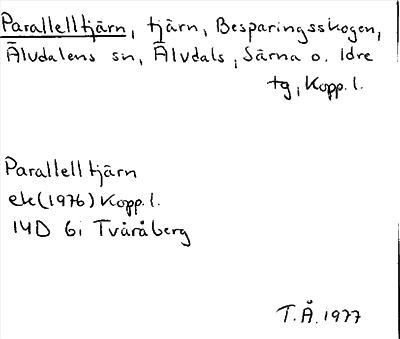 Parallelltjärn, tjärn, Besparingsskogen,
Älvdalens sn, Älvdals, Särna o. Idre
tg, Kopp. l.
Parallelltjärn
ek (1976) Kopp. l.
14D 6i Tvåråberg
T.Å. 1977